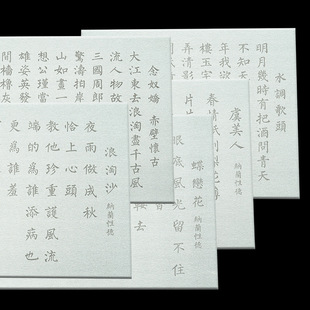 水調歌頭
明月幾時有把酒問青天
不知天
年我欲
樓玉宇
弄清影
念奴嬌 赤壁懷古
大江東去浪淘盡千古風
流人物故
三國周郎
驚濤拍岸
山如畫一
想公瑾當
雄姿英發
間檣櫓灰
虞美人 納蘭性德
春情只到梨花薄
片片
蝶戀花 納蘭性德
眼底風光留不住
鞍去
浪淘沙 納蘭性德
夜雨做成秋
恰上心頭
教他珍重護風流
端的為誰添病也
更為誰羞